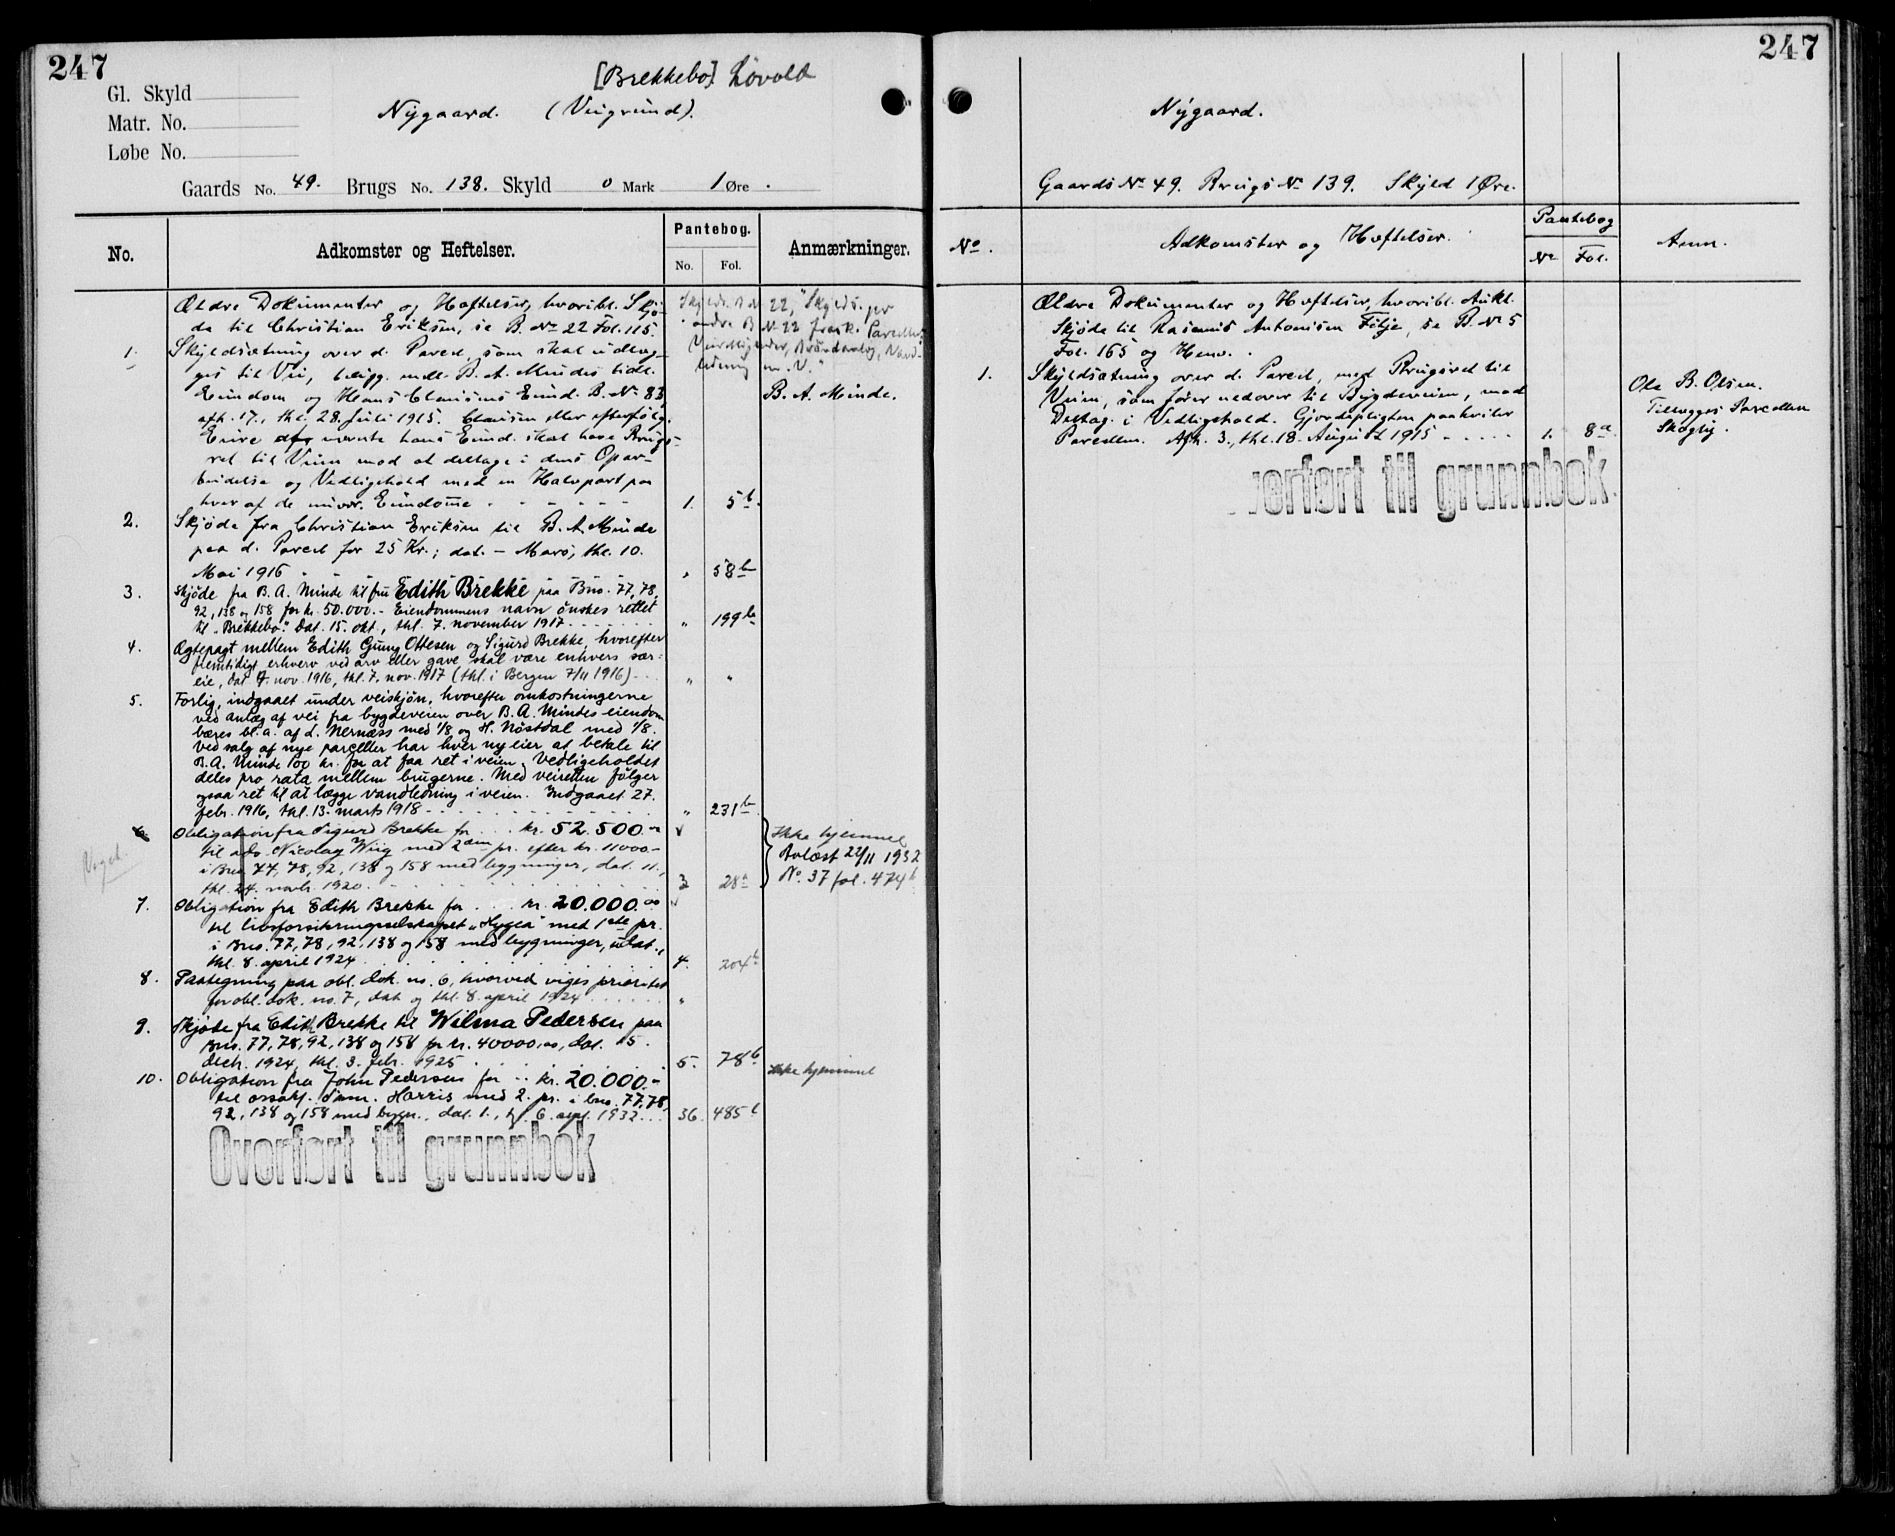 247
Gl. Skyld
Matr. No.
Løbe No.
[Brekkebo] Løvold
Nygaard. (Veigrund).
Gaards No. 49. Brugs No. 138. Skyld 0 Mark 1 Øre.
No.
Adkomster og Heftelser.
Pantebog.
No. Fol.
Anmærkninger.
Ældre Dokumenter og Heftelser, hvoribl. Skjø-
de til Christian Eriksen, se B. No 22 Fol. 115.
1. Skyldsætning over d. Parcel, som skal udlæg-
ges til Vei, beligg. mell. B. A. Mindes tidl.
Eiendom og Hans Clausens Eiend. B. No 83
afh. 17., thl. 28. Juli 1915. Clausen eller efterfølg.
Eiere af nævnte hans Eiend. skal have Brugs-
ret til Veien mod at deltage i dens Opar-
beidelse og Vedligehold med en Halvpart paa
hver af de nævnte Eiendomme - - - - - 1. 5b.
B. A. Minde.
2. Skjøde fra Christian Eriksen til B. A. Minde
paa d. Parcel for 25 Kr.; dat. - Mars, thl. 10.
Mai 1916 - - - - " 58b
3. Skjøde fra B. A. Minde til fru Edith Brekke paa Bno. 77, 78,
92, 138 og 158 for kr. 50.000.- Eiendommens navn ønskes rettet
til "Brekkebo". Dat. 15. okt., thl. 7. november 1917 . . . . . " 199b
4. Ægtepagt mellem Edith Gunny Ottesen og Sigurd Brekke, hvorefter
fremtidigt erhverv ved arv eller gave skal være enhvers sær-
eie, dat. 7. nov. 1916, thl. 7. nov. 1917 (thl. i Bergen 7/11 1916) . . . " "
5. Forlig, indgaaet under veiskjøn, hvorefter omkostningerne
ved anlæg af vei fra bygdeveien over B. A. Mindes eiendom
bæres bl. a. af d. Nernæss med 1/8 og H. Nøstdal med 1/8.
Ved salg af nye parceller har hver ny eier at betale til
B. A. Minde 100 kr. for at faa ret i veien. Vedligeholdet
deles pro rata mellem brugerne. Med veiretten følger
ogsaa ret til at lægge vandledning i veien. Indgaaet 27.
febr. 1916, thl. 13. marts 1918 - - - - - " 231b
6. Obligation fra Sigurd Brekke for . . . kr. 52.500.-
til adv. Nicolay Wiig med 2den pr. efter kr. 11000.-
i Bno. 77, 78, 92, 138 og 158 med bygninger, dat. 11.,
thl. 24. novbr. 1920 . . . . . 3 28a
Ikke hjemmel
Avlæst 22/11 1932
No. 37 fol. 474b
7. Obligation fra Edith Brekke for . . . kr. 20.000.00
til livsforsikringsselskapet "Hygea" med 1ste pr.
i Bno. 77, 78, 92, 138 og 158 med bygninger, udat.,
thl. 8. april 1924 . . . . . 4. 204b
8. Paategning paa obl. dok. no. 6, hvorved viges prioritet
for obl. dok. no. 7, dat. og thl. 8. april 1924 . . . . . "
9. Skjøte fra Edith Brekke til Wilma Pedersen paa
Bno. 77, 78, 92, 138 og 158 for kr. 40000,00, dat. 15.
decbr. 1924, thl. 3. febr. 1925 . . . . . 5. 78b
10. Obligation fra John Pedersen for .. kr. 20.000.-
Ikke hjemmel
til Harris med 2. pr. i bno. 77, 78,
92, 138 og 158 med bygn., dat. 1., 6. sept. 1932 . . . 36. 485b
Overført til grunnbok
247
Nygaard.
Gaards No 49. Brugs No 139. Skyld 1 Øre.
No. Adkomster og Heftelser. Pantebog
No Fol. Anm.
Ældre Dokumenter og Heftelser, hvoribl. Aukt.
Skjøde til Rasmus Antonisen Følje, se B. No 5
Fol. 165 og Henv. .
1. Skyldsætning over d. Parcel, med Brugsret til
Veien, som fører nedover til Bygdeveien, mod
Deltag. i Vedligehold. Gjerdepligten paahviler
Parcellen. Afh. 3., thl. 18. August 1915 - - - - - 1. 8a
Ole B. Olsen.
Tillægges Parcellen
Skoglig.
verført til grunnbok.